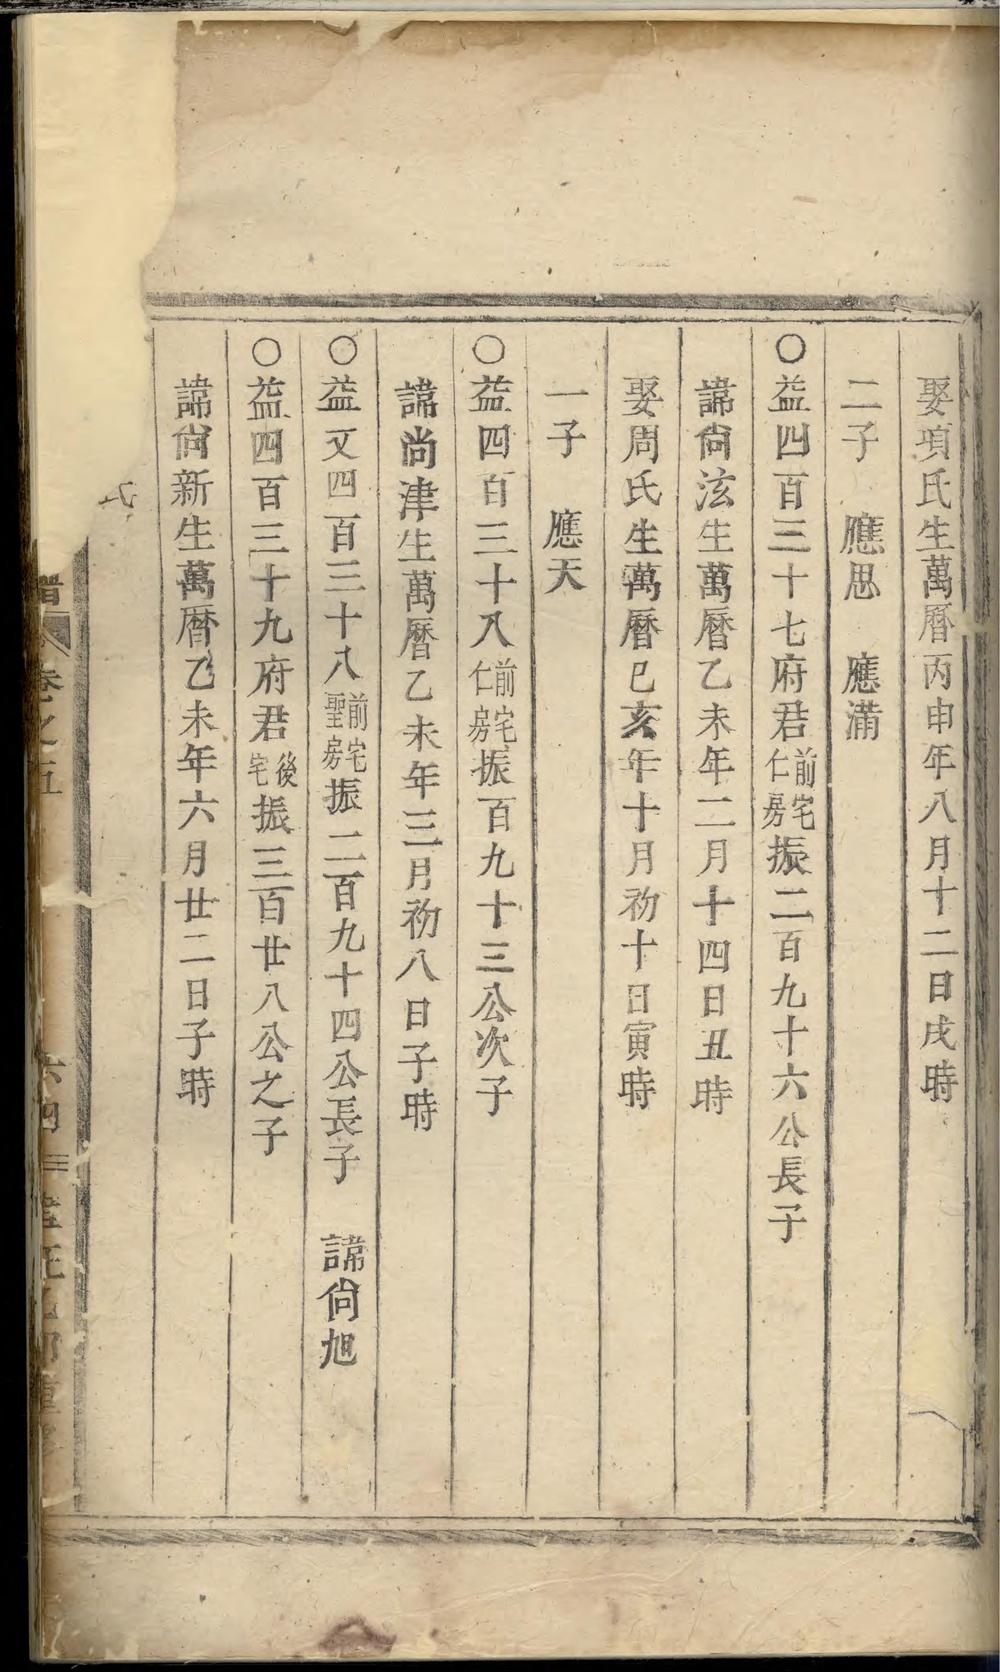 娶項氏生萬曆丙申年八月十二日戌時
二子　應思　應滿
○益四百三十七府君前宅仁房振二百九十六公長子
諱尙泫生萬曆乙未年二月十四日丑時
娶周氏生萬曆已亥年十月初十日寅時
一子　應天
○益四百三十八前宅仁房振百九十三公次子
諱尚津生萬曆乙未年三月初八日子時
○益又四百三十八前宅聖房振二百九十四公長子　諱尙旭
○益四百三十九府君後宅振三百廿八公之子
諱尙新生萬曆乙未年六月廿二日子時
氏
譜 卷之五 六四